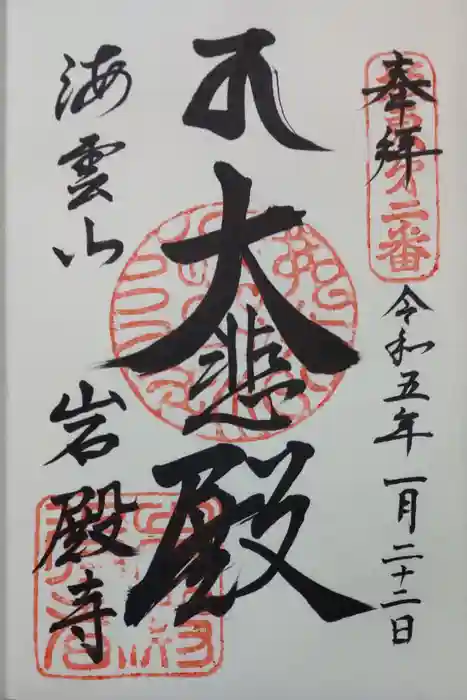 奉拝
坂東第二番
令和五年一月二十二日
大悲殿
海雲山
岩殿寺